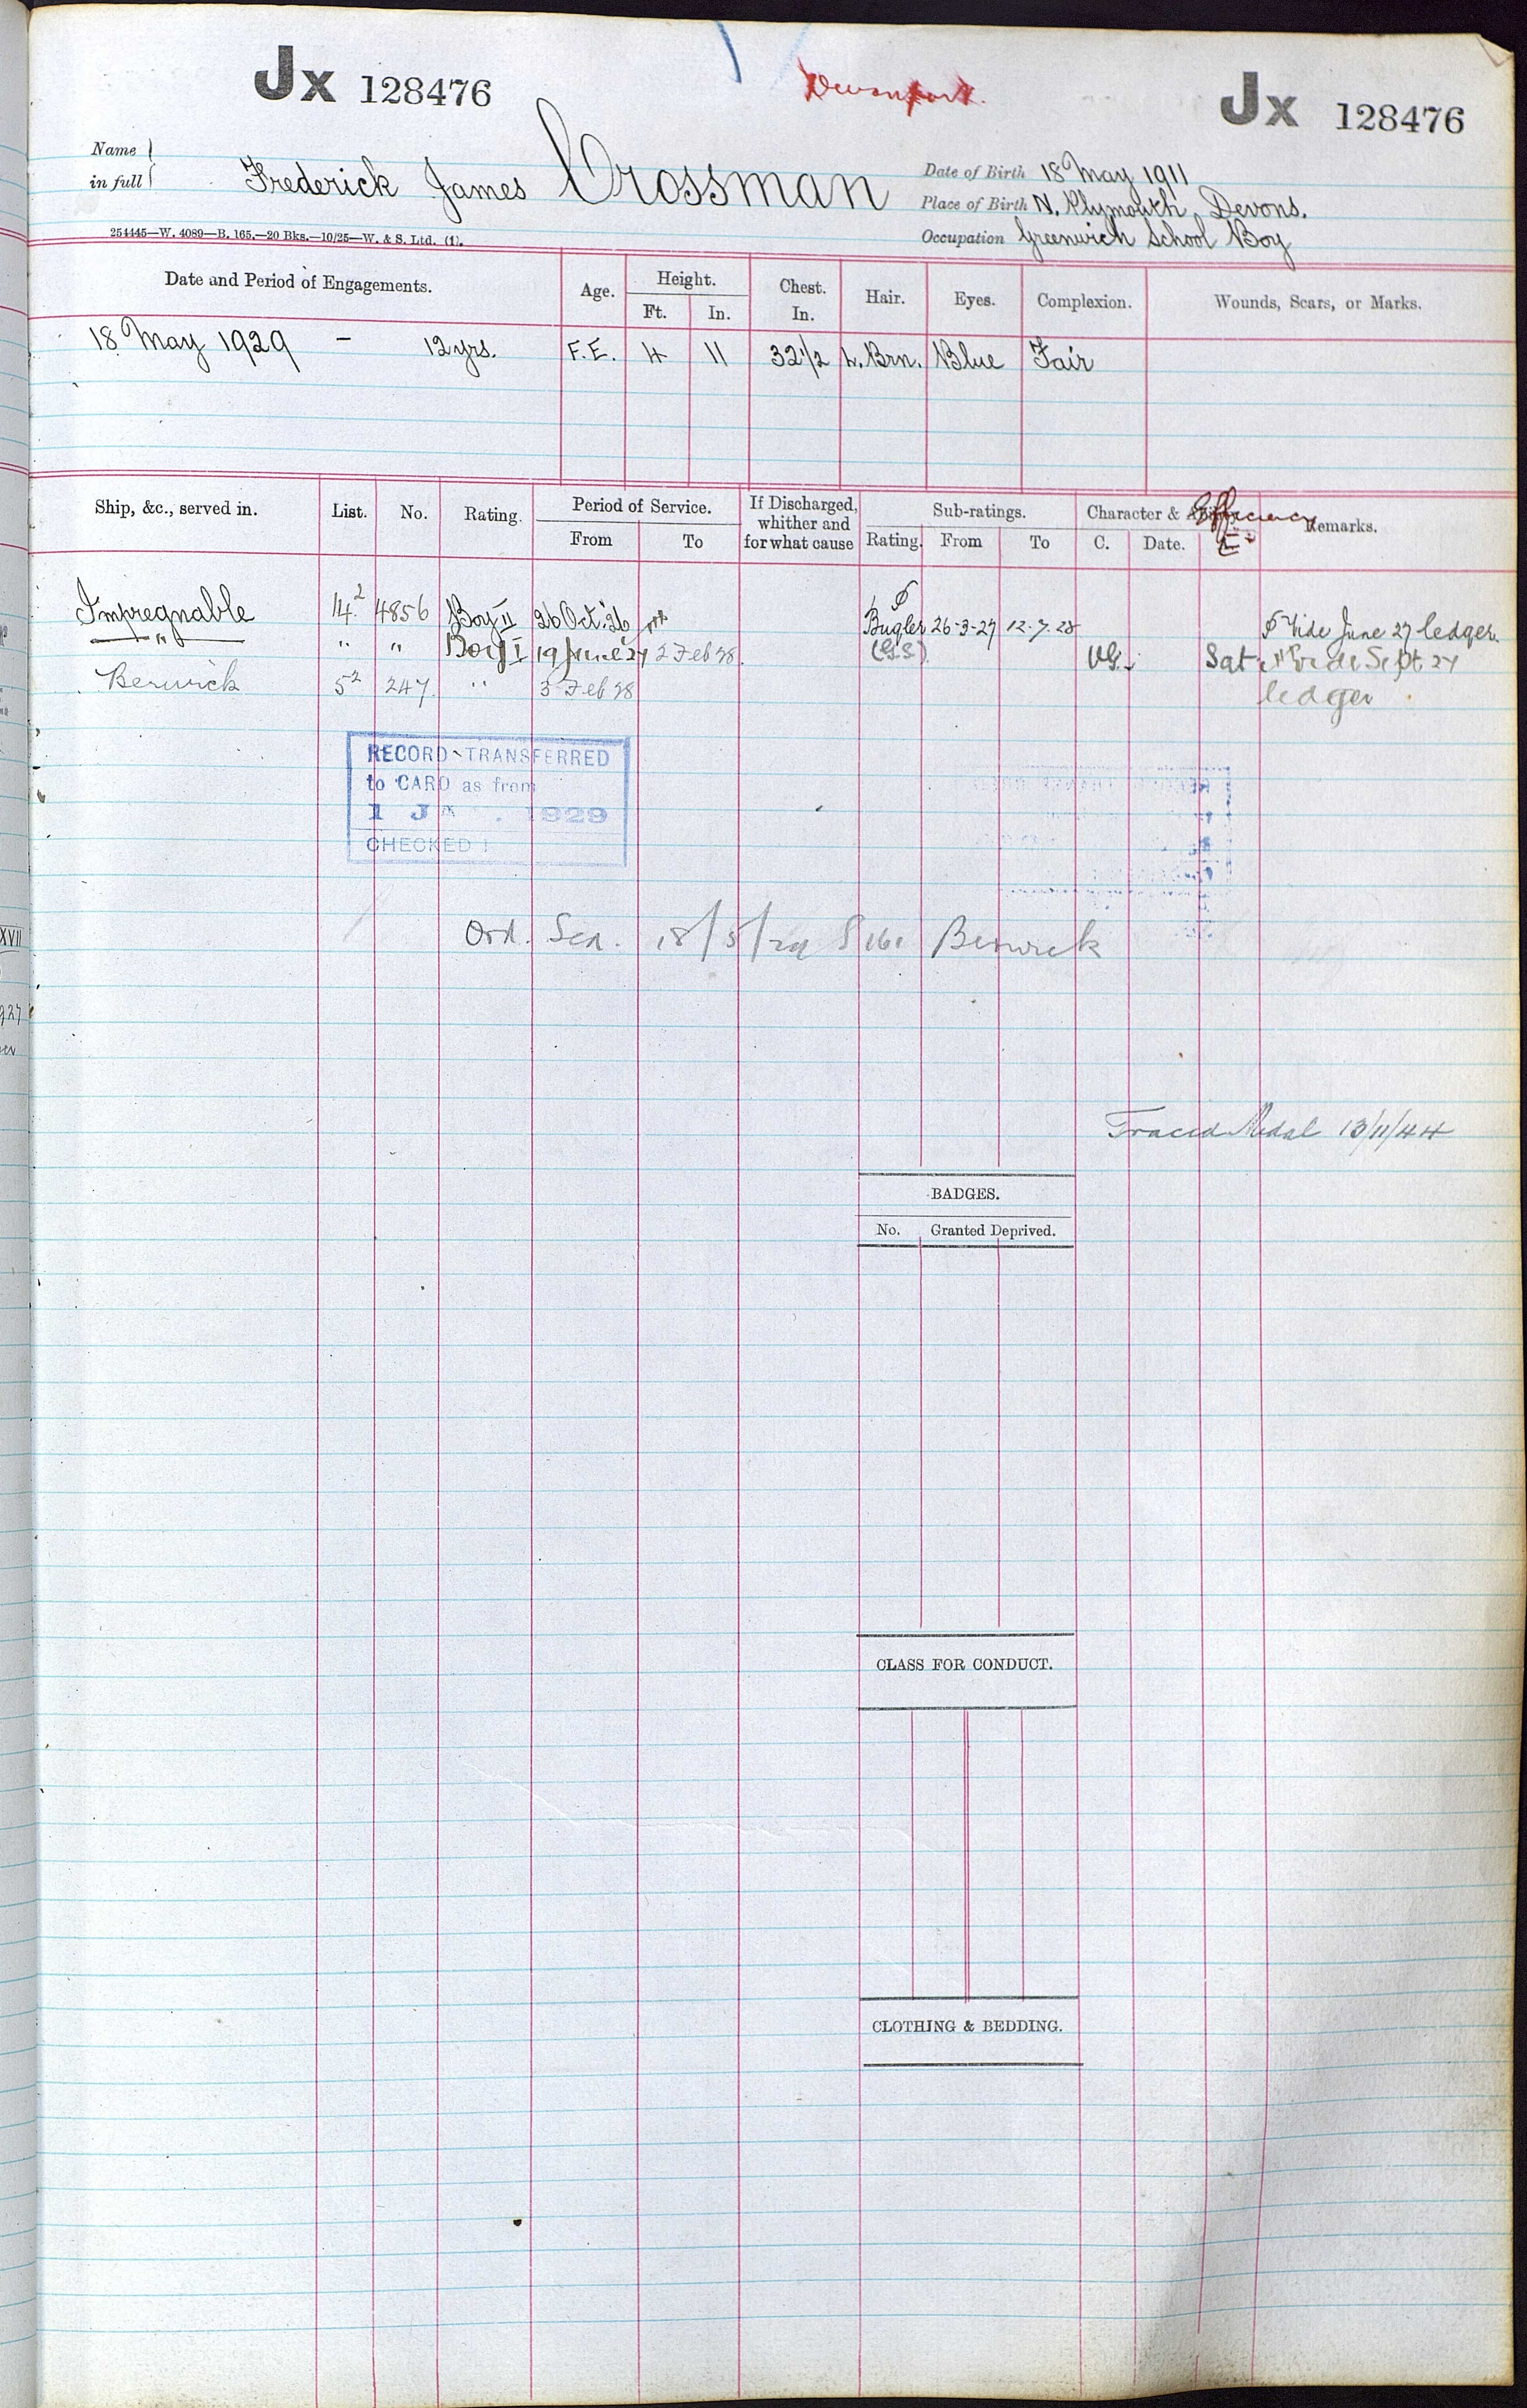 Jx 128476
Devonport.
Jx 128476
Name in full Frederick James Crossman
Date of Birth 18 May 1911
Place of Birth N. Plymouth, Devons.
Occupation Greenwich School Boy
254445—W. 4089—B. 165.—20 Bks.—10/25—W. & S. Ltd. (1).
Date and Period of Engagements. Age. Height. Ft. In. Chest. In. Hair. Eyes. Complexion. Wounds, Scars, or Marks.
18 May 1929 - 12 yrs. F.E. 4 11 32 1/2 L. Brn. Blue Fair
Ship, &c., served in. List. No. Rating. Period of Service. From To If Discharged, whither and for what cause Sub-ratings. Rating. From To Character & Efficiency C. Date. E Remarks.
Impregnable 14² 4856 Boy II 26 Oct. '26 Bugler 26-3-27 12-7-28 Vide June 27 ledger.
" " " Boy I 19 June 27 2 Feb 28. (G.S) VG. Sat Vide Sept 27
Berwick 5² 247 " 3 Feb 28 ledger
RECORD TRANSFERRED
to CARD as from
1 JA . 1929
CHECKED
Ord. Sea. 18/5/29 Berwick
Traced Medal 13/11/44
BADGES.
No. Granted Deprived.
CLASS FOR CONDUCT.
CLOTHING & BEDDING.
XVII
927